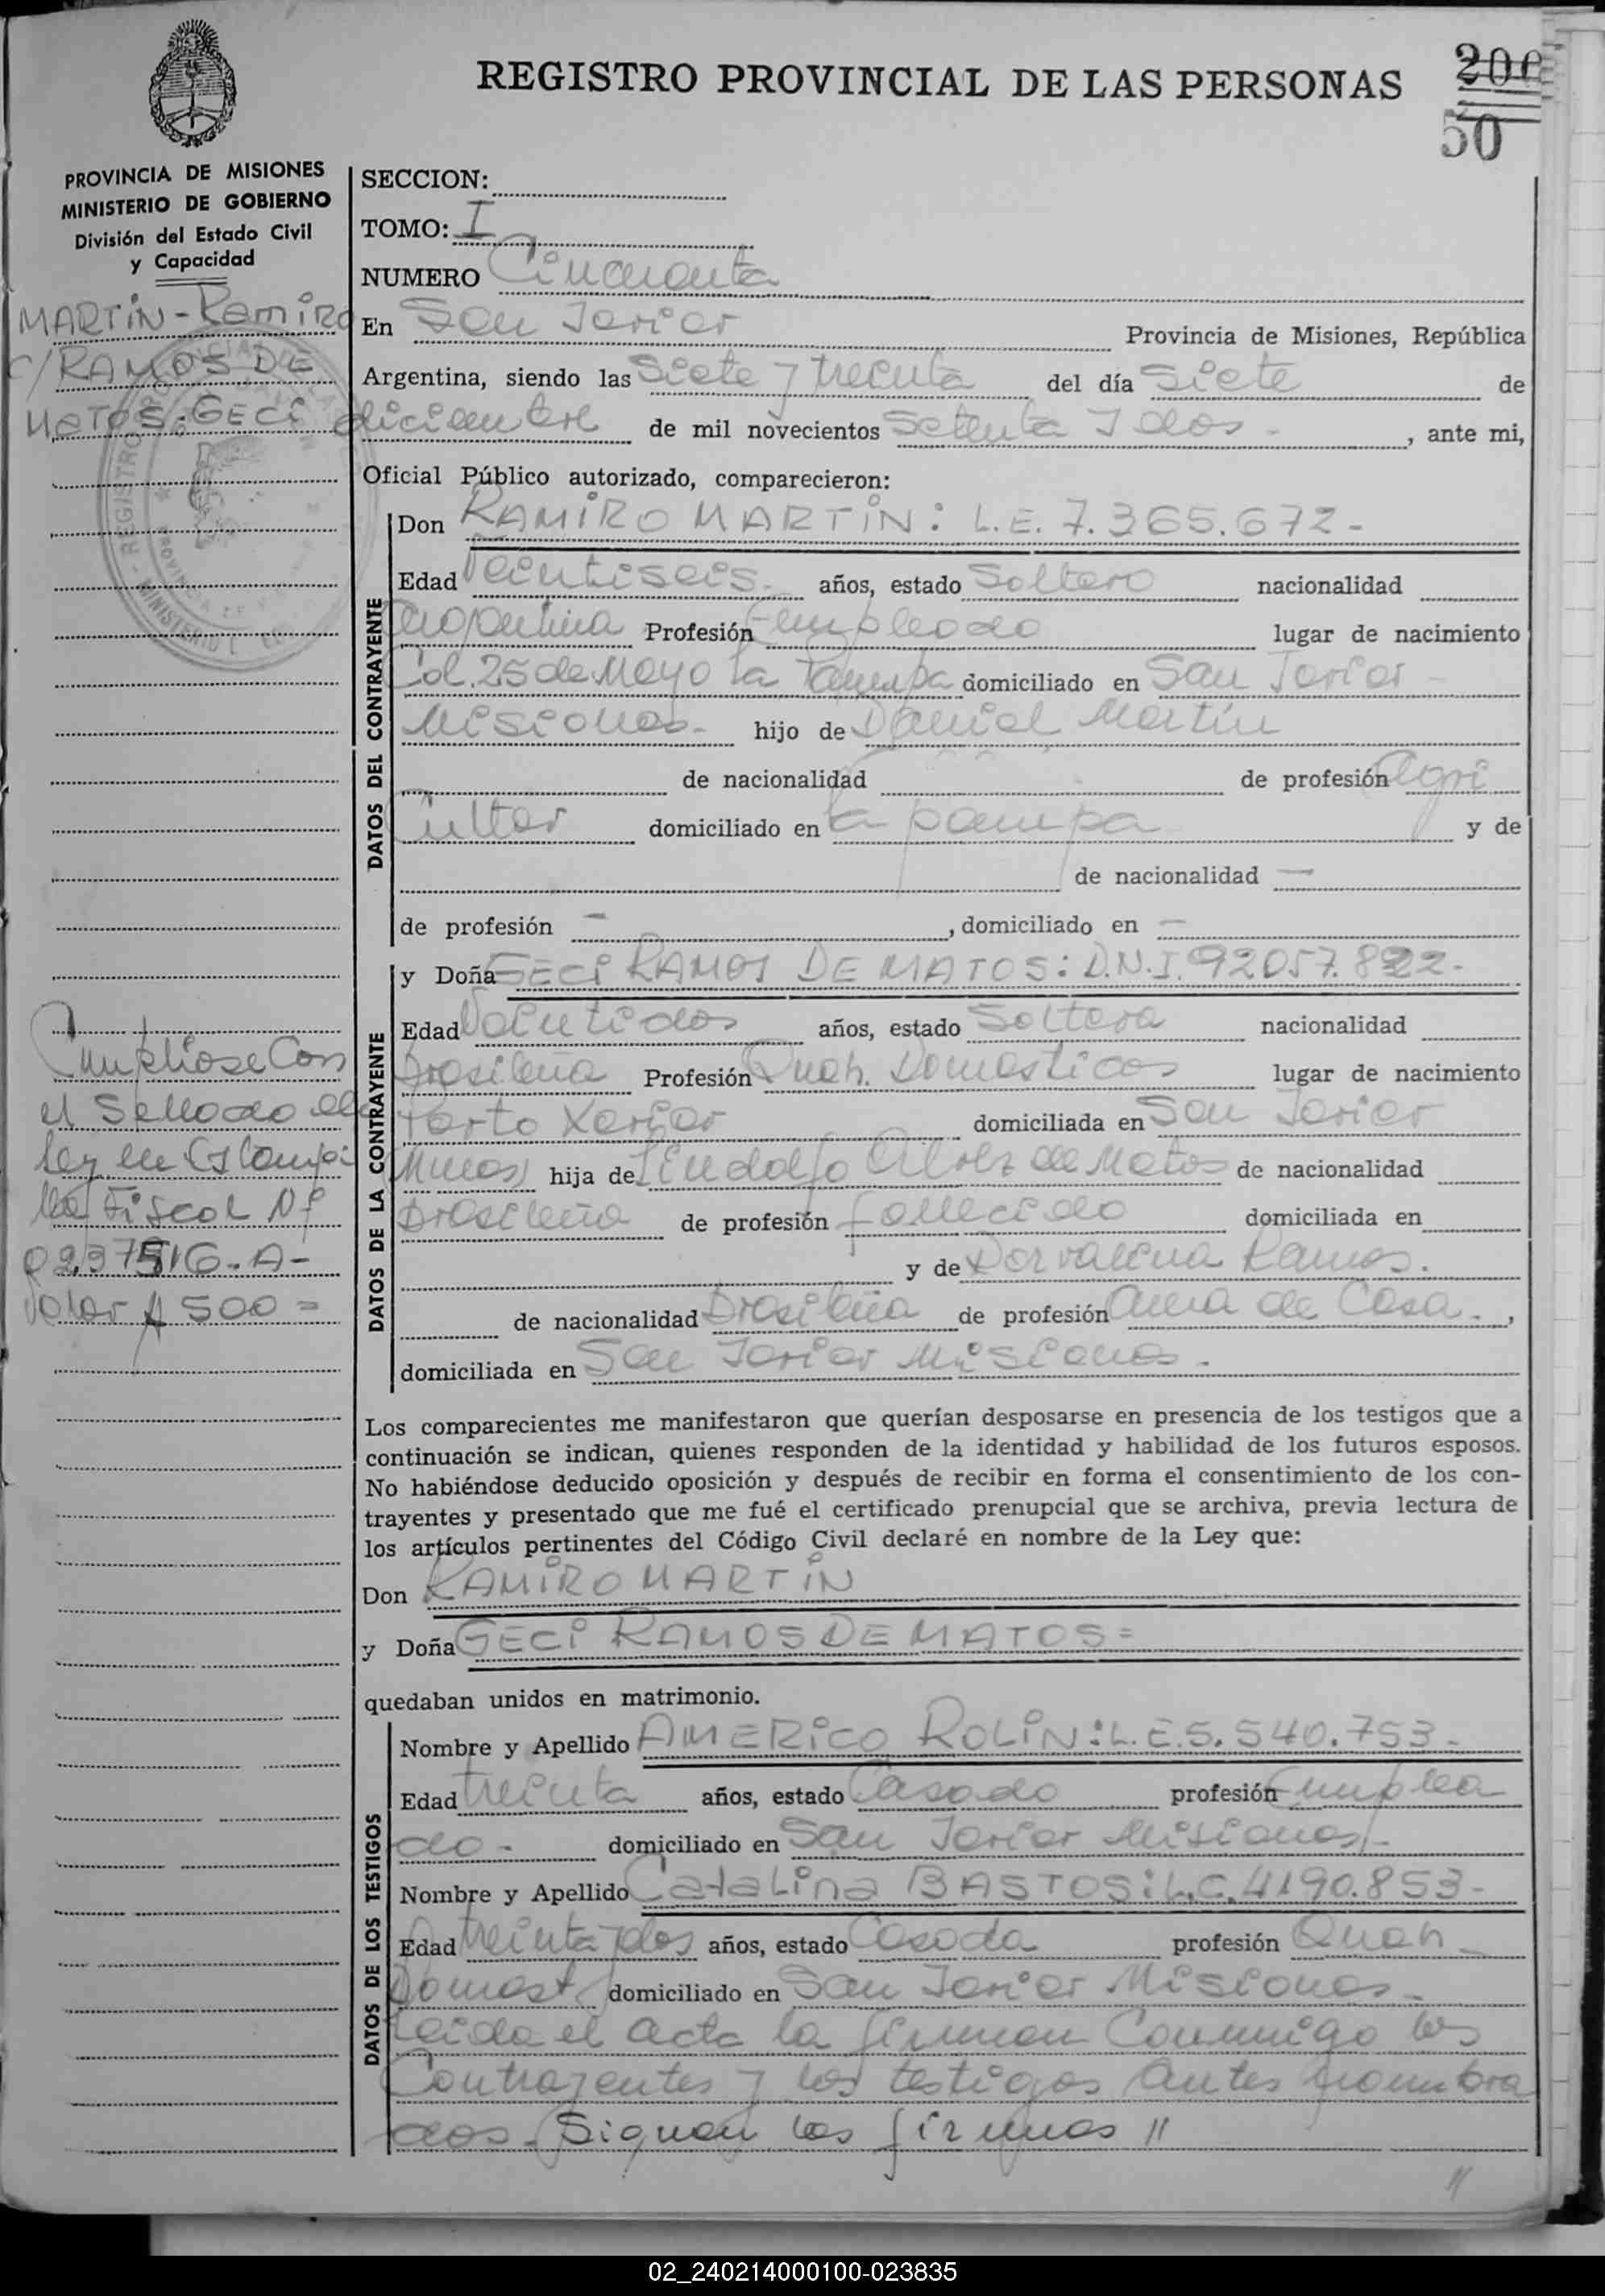 REGISTRO PROVINCIAL DE LAS PERSONAS
200
50
PROVINCIA DE MISIONES
MINISTERIO DE GOBIERNO
División del Estado Civil
y Capacidad
MARTIN - Ramiro
C/ RAMOS DE
MATOS: GECI
Cumpliose Con
el Sellado de
ley en Estampi
lla Fiscal Nº
0297516-A-
Valor $ 500=
SECCION:
TOMO: I
NUMERO Cincuenta
En San Javier Provincia de Misiones, República
Argentina, siendo las Siete y treinta del día Siete de
diciembre de mil novecientos Setenta y dos - , ante mi,
Oficial Público autorizado, comparecieron:
DATOS DEL CONTRAYENTE
Don RAMIRO MARTIN: L.E. 7.365.672-
Edad Veintiseis. años, estado Soltero nacionalidad
argentina Profesión Empleado lugar de nacimiento
Col. 25 de Mayo La Pampa domiciliado en San Javier -
Misiones- hijo de Daniel Martin
de nacionalidad de profesión agri
Cultor domiciliado en La pampa y de
de nacionalidad —
de profesión - , domiciliado en —
DATOS DE LA CONTRAYENTE
y Doña GECI RAMOS DE MATOS: D.N.I. 92057.822-
Edad Veintidos años, estado Soltera nacionalidad
Brasileña Profesión Queh. Domesticos lugar de nacimiento
Porto Xavier domiciliada en San Javier
Mnes) hija de Lindolfo Alvez de Matos de nacionalidad
Brasileña de profesión fallecido domiciliada en
y de Dorvalina Ramos.
de nacionalidad Brasileña de profesión ama de Casa. ,
domiciliada en San Javier Misiones -
Los comparecientes me manifestaron que querían desposarse en presencia de los testigos que a
continuación se indican, quienes responden de la identidad y habilidad de los futuros esposos.
No habiéndose deducido oposición y después de recibir en forma el consentimiento de los con-
trayentes y presentado que me fué el certificado prenupcial que se archiva, previa lectura de
los artículos pertinentes del Código Civil declaré en nombre de la Ley que:
Don RAMIRO MARTIN
y Doña GECI RAMOS DE MATOS=
quedaban unidos en matrimonio.
DATOS DE LOS TESTIGOS
Nombre y Apellido AMERICO ROLIN: L.E. 5.540.753-
Edad treinta años, estado Casado profesión Emplea
do - domiciliado en San Javier Misiones/-
Nombre y Apellido Catalina BASTOS: L.C. 4190.853-
Edad treinta y dos años, estado Casada profesión Queh -
Domest/ domiciliado en San Javier Misiones -
Leida el acta la firman Conmigo los
Contrayentes y los testigos Antes nombra
dos - Siguen las firmas //
//
02_240214000100-023835